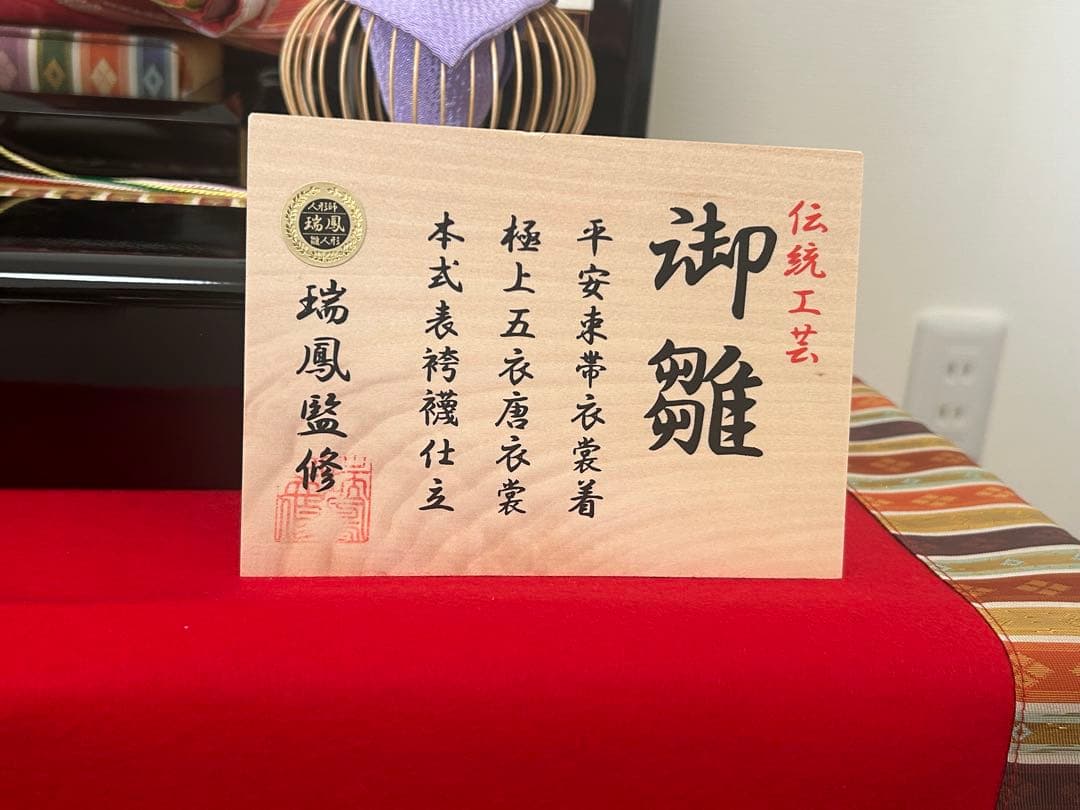 伝統工芸
御雛
平安束帯衣裳着
極上五衣唐衣裳
本式表袴襪仕立
人形師
瑞鳳
雛人形
瑞鳳監修